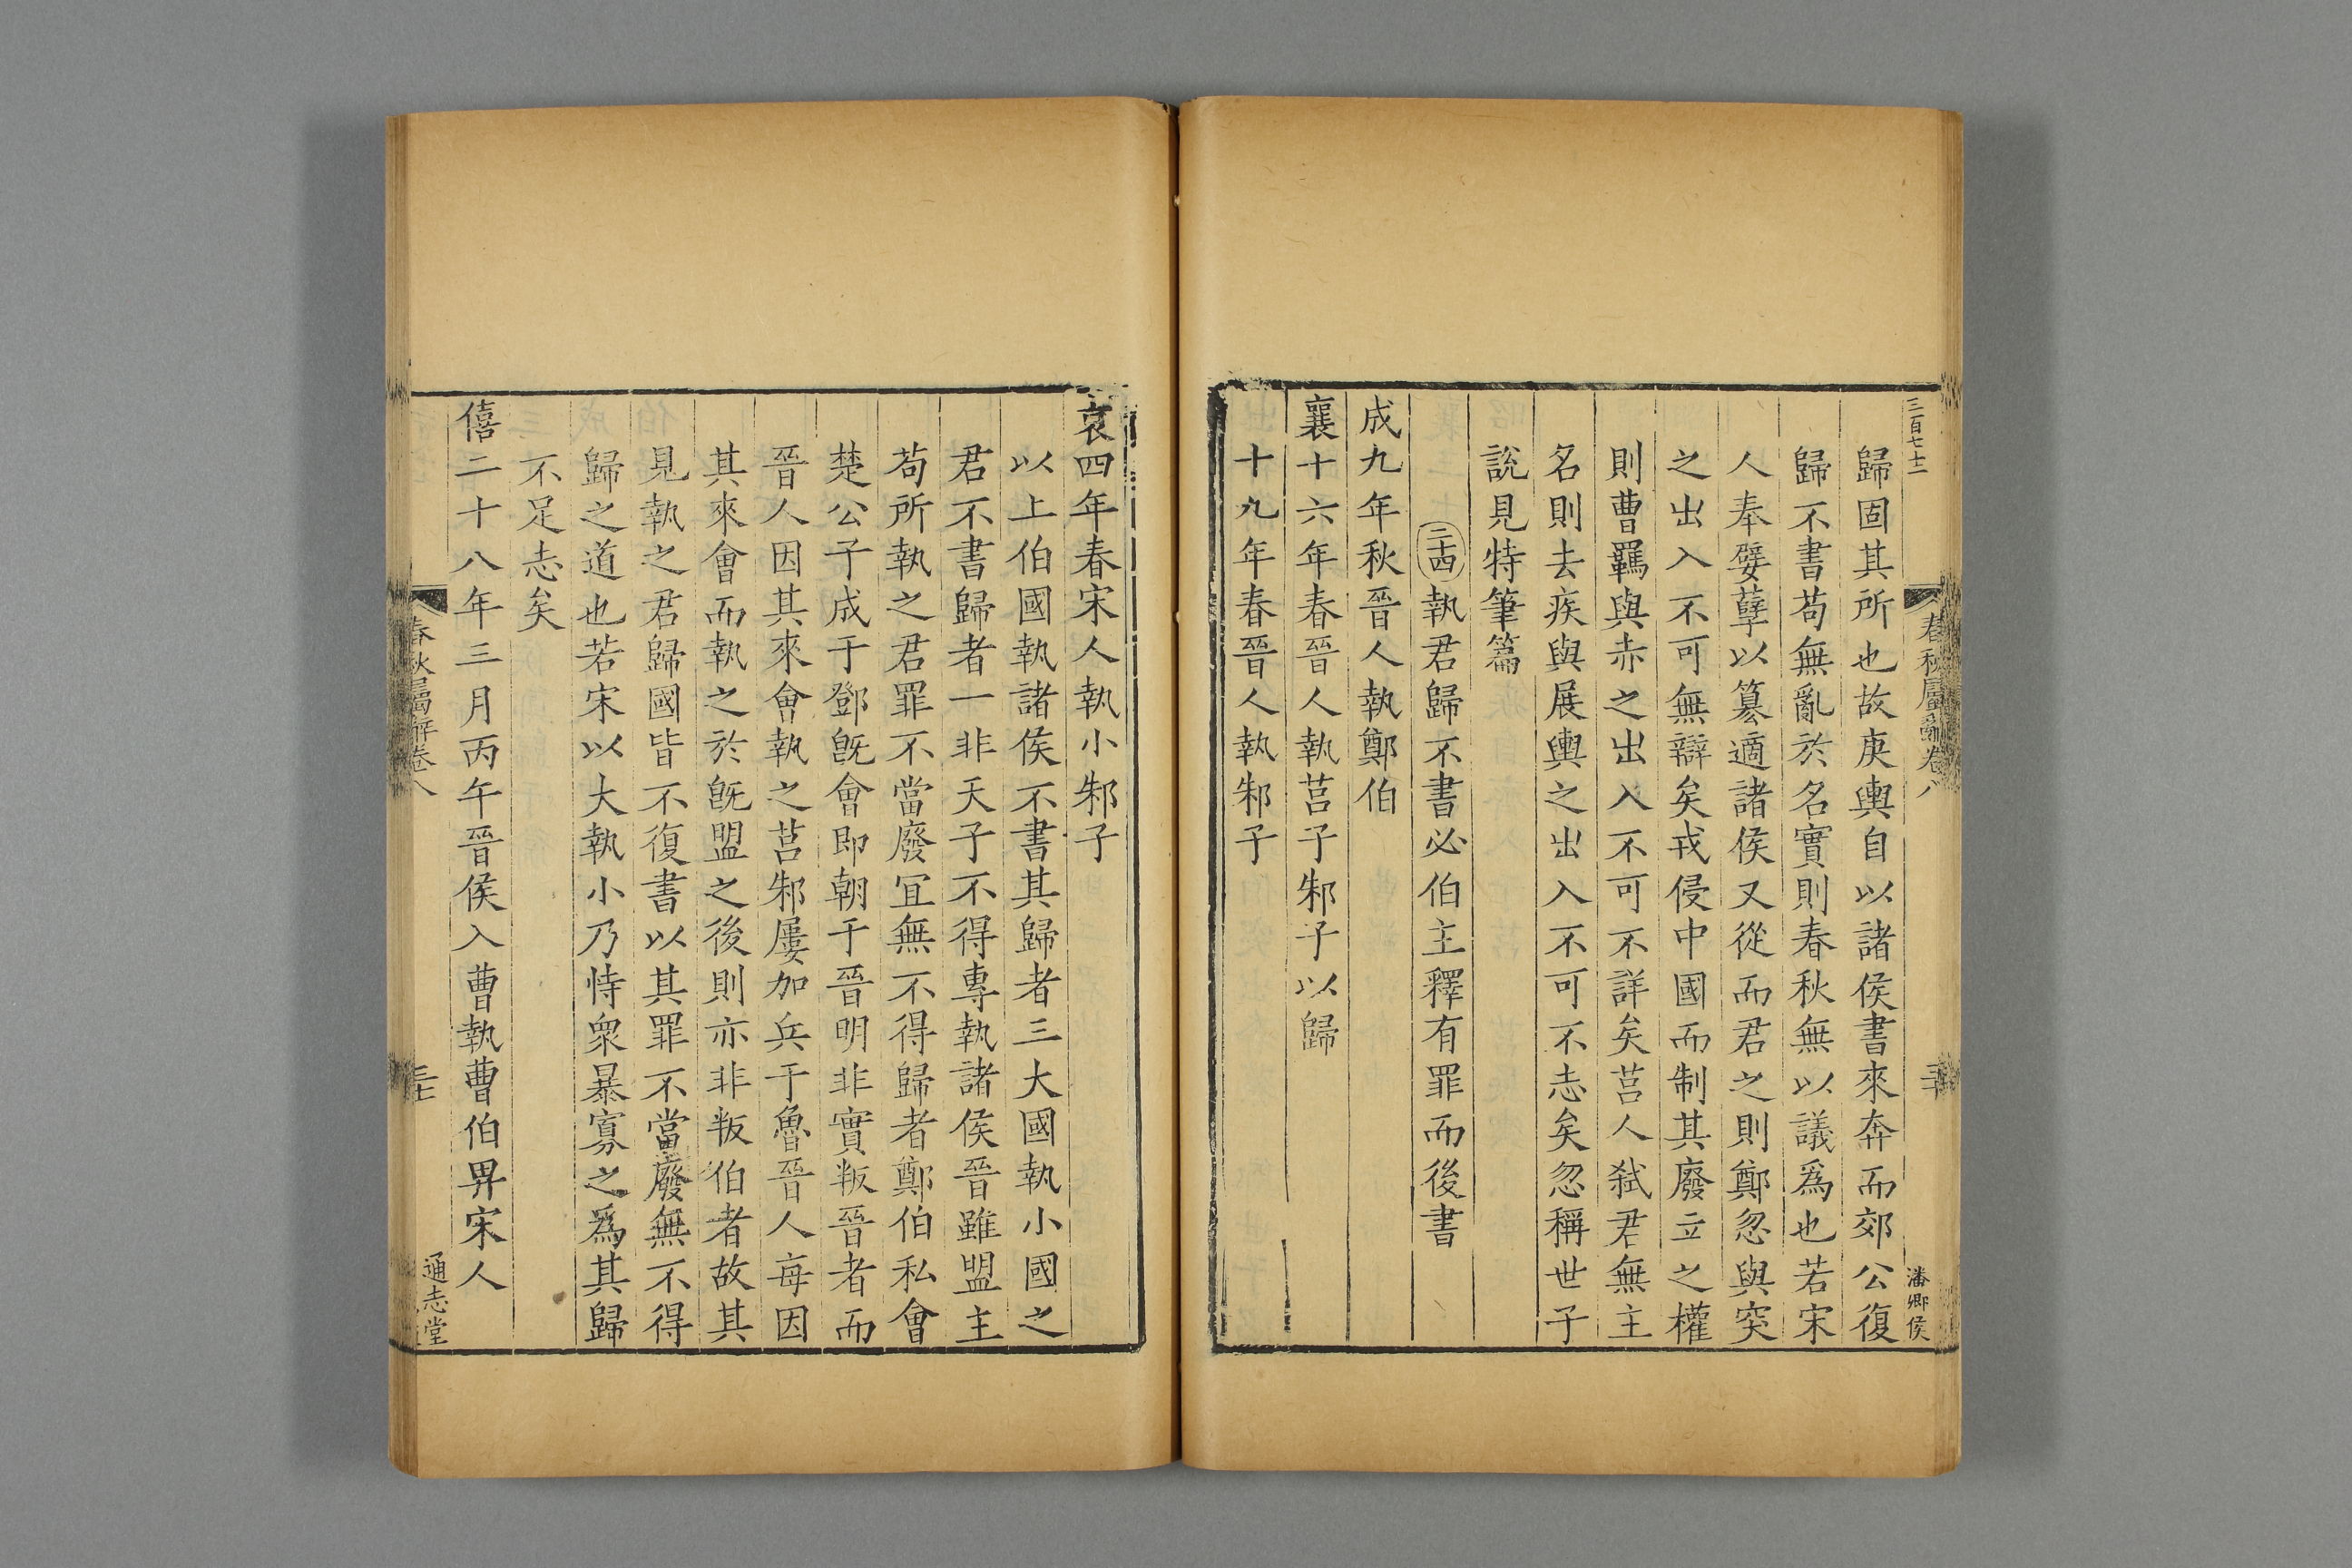 三百七十二
春秋屬辭卷八
潘卿侯
歸固其所也故庚輿自以諸侯書來奔而郊公復
歸不書苟無亂於名實則春秋無以議爲也若宋
人奉嬖孽以簒適諸侯又從而君之則鄭忽與突
之出入不可無辯矣戎侵中國而制其廢立之權
則曹羈與赤之出入不可不詳矣莒人弑君無主
名則去疾與展輿之出入不可不志矣忽稱世子
說見特筆篇
二十四執君歸不書必伯主釋有罪而後書
成九年秋晉人執鄭伯
襄十六年春晉人執莒子邾子以歸
十九年春晉人執邾子
哀四年春宋人執小邾子
以上伯國執諸侯不書其歸者三大國執小國之
君不書歸者一非天子不得專執諸侯晉雖盟主
苟所執之君罪不當廢冝無不得歸者鄭伯私會
楚公子成于鄧旣會即朝于晉明非實叛晉者而
晉人因其來會執之莒邾屢加兵于魯晉人每因
其來會而執之於旣盟之後則亦非叛伯者故其
見執之君歸國皆不復書以其罪不當廢無不得
歸之道也若宋以大執小乃恃衆暴寡之爲其歸
不足志矣
僖二十八年三月丙午晉侯入曹執曹伯畀宋人
春秋屬辭卷八
通志堂